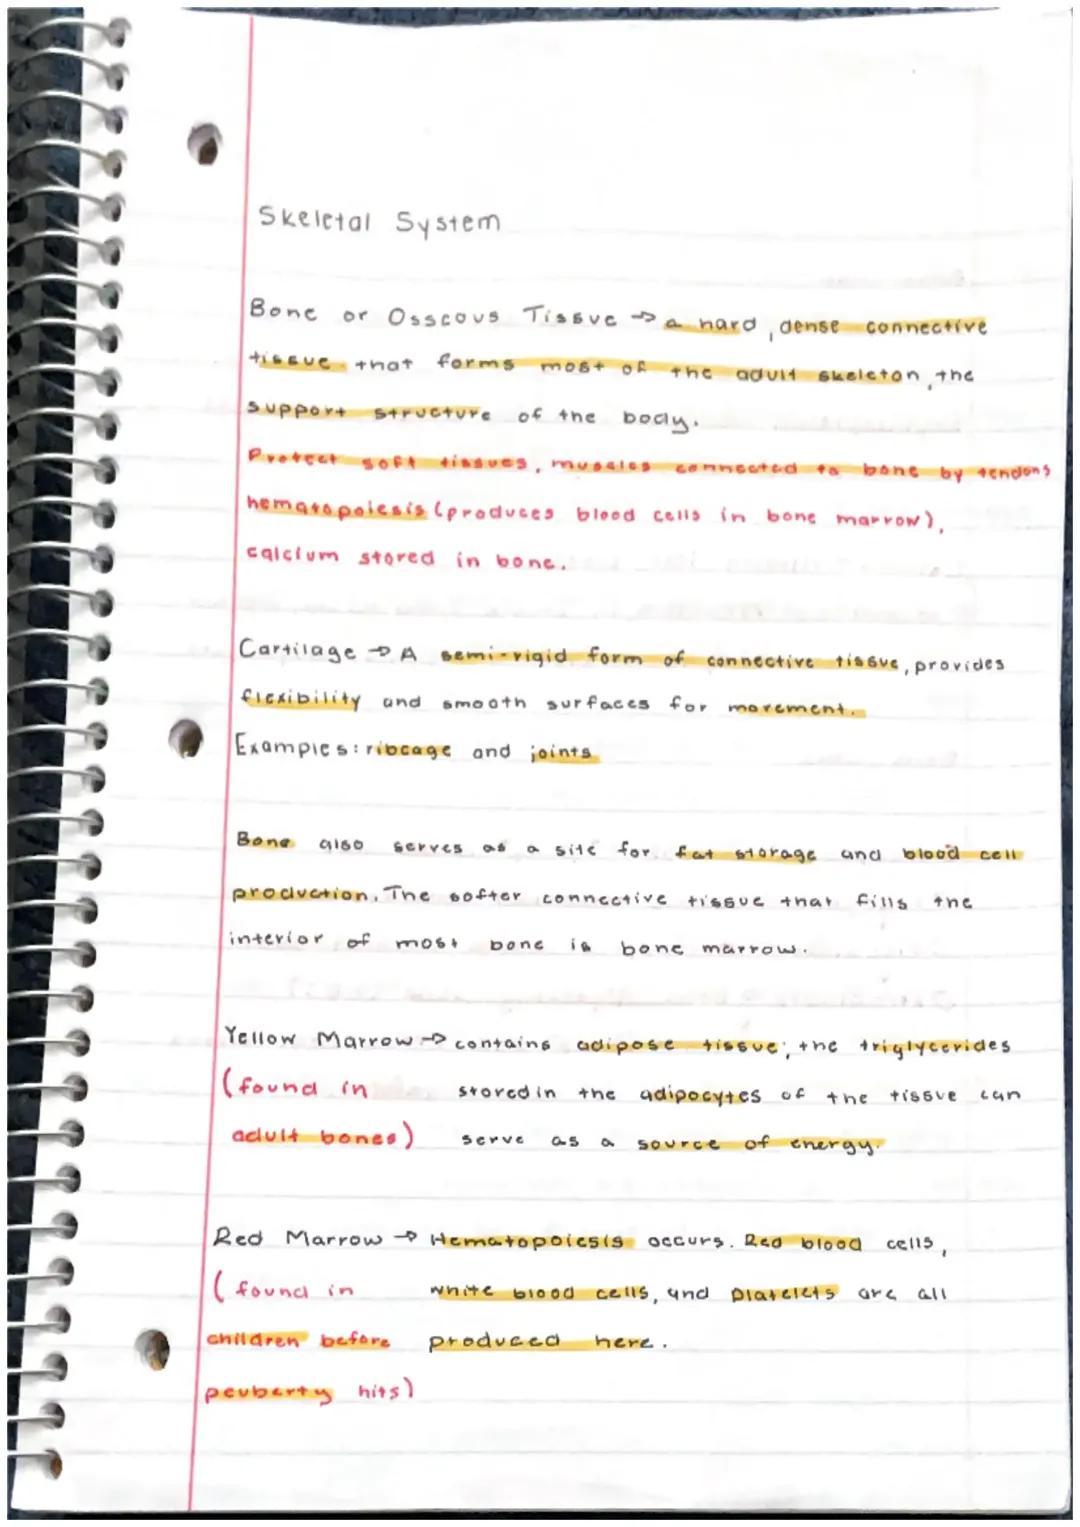 Skeletal System
Bone or Osscous Tissue → a hard, dense connective
tissue that forms most of the adult skeleton, the
support structure of the body.
Protect soft tissues, muscles connected to bone by tendons
hematopoiesis (produces blood cells in bone marrow),
calcium stored in bone.
Cartilage → A semi-rigid form of connective tissue, provides
flexibility and smooth surfaces for movement.
Examples: ribcage and joints
Bone also serves as a site for fat storage and blood cell
production. The softer connective tissue that fills the
interior of most bone is bone marrow.
Yellow Marrow → contains adipose tissue; the triglycerides
(found in stored in the adipocytes of the tissue can
adult bones) serve as a source of energy.
Red Marrow → Hematopoiesis occurs. Red blood cells,
(found in white blood cells, and Platelets are all
children before produced here.
peuberty hits)